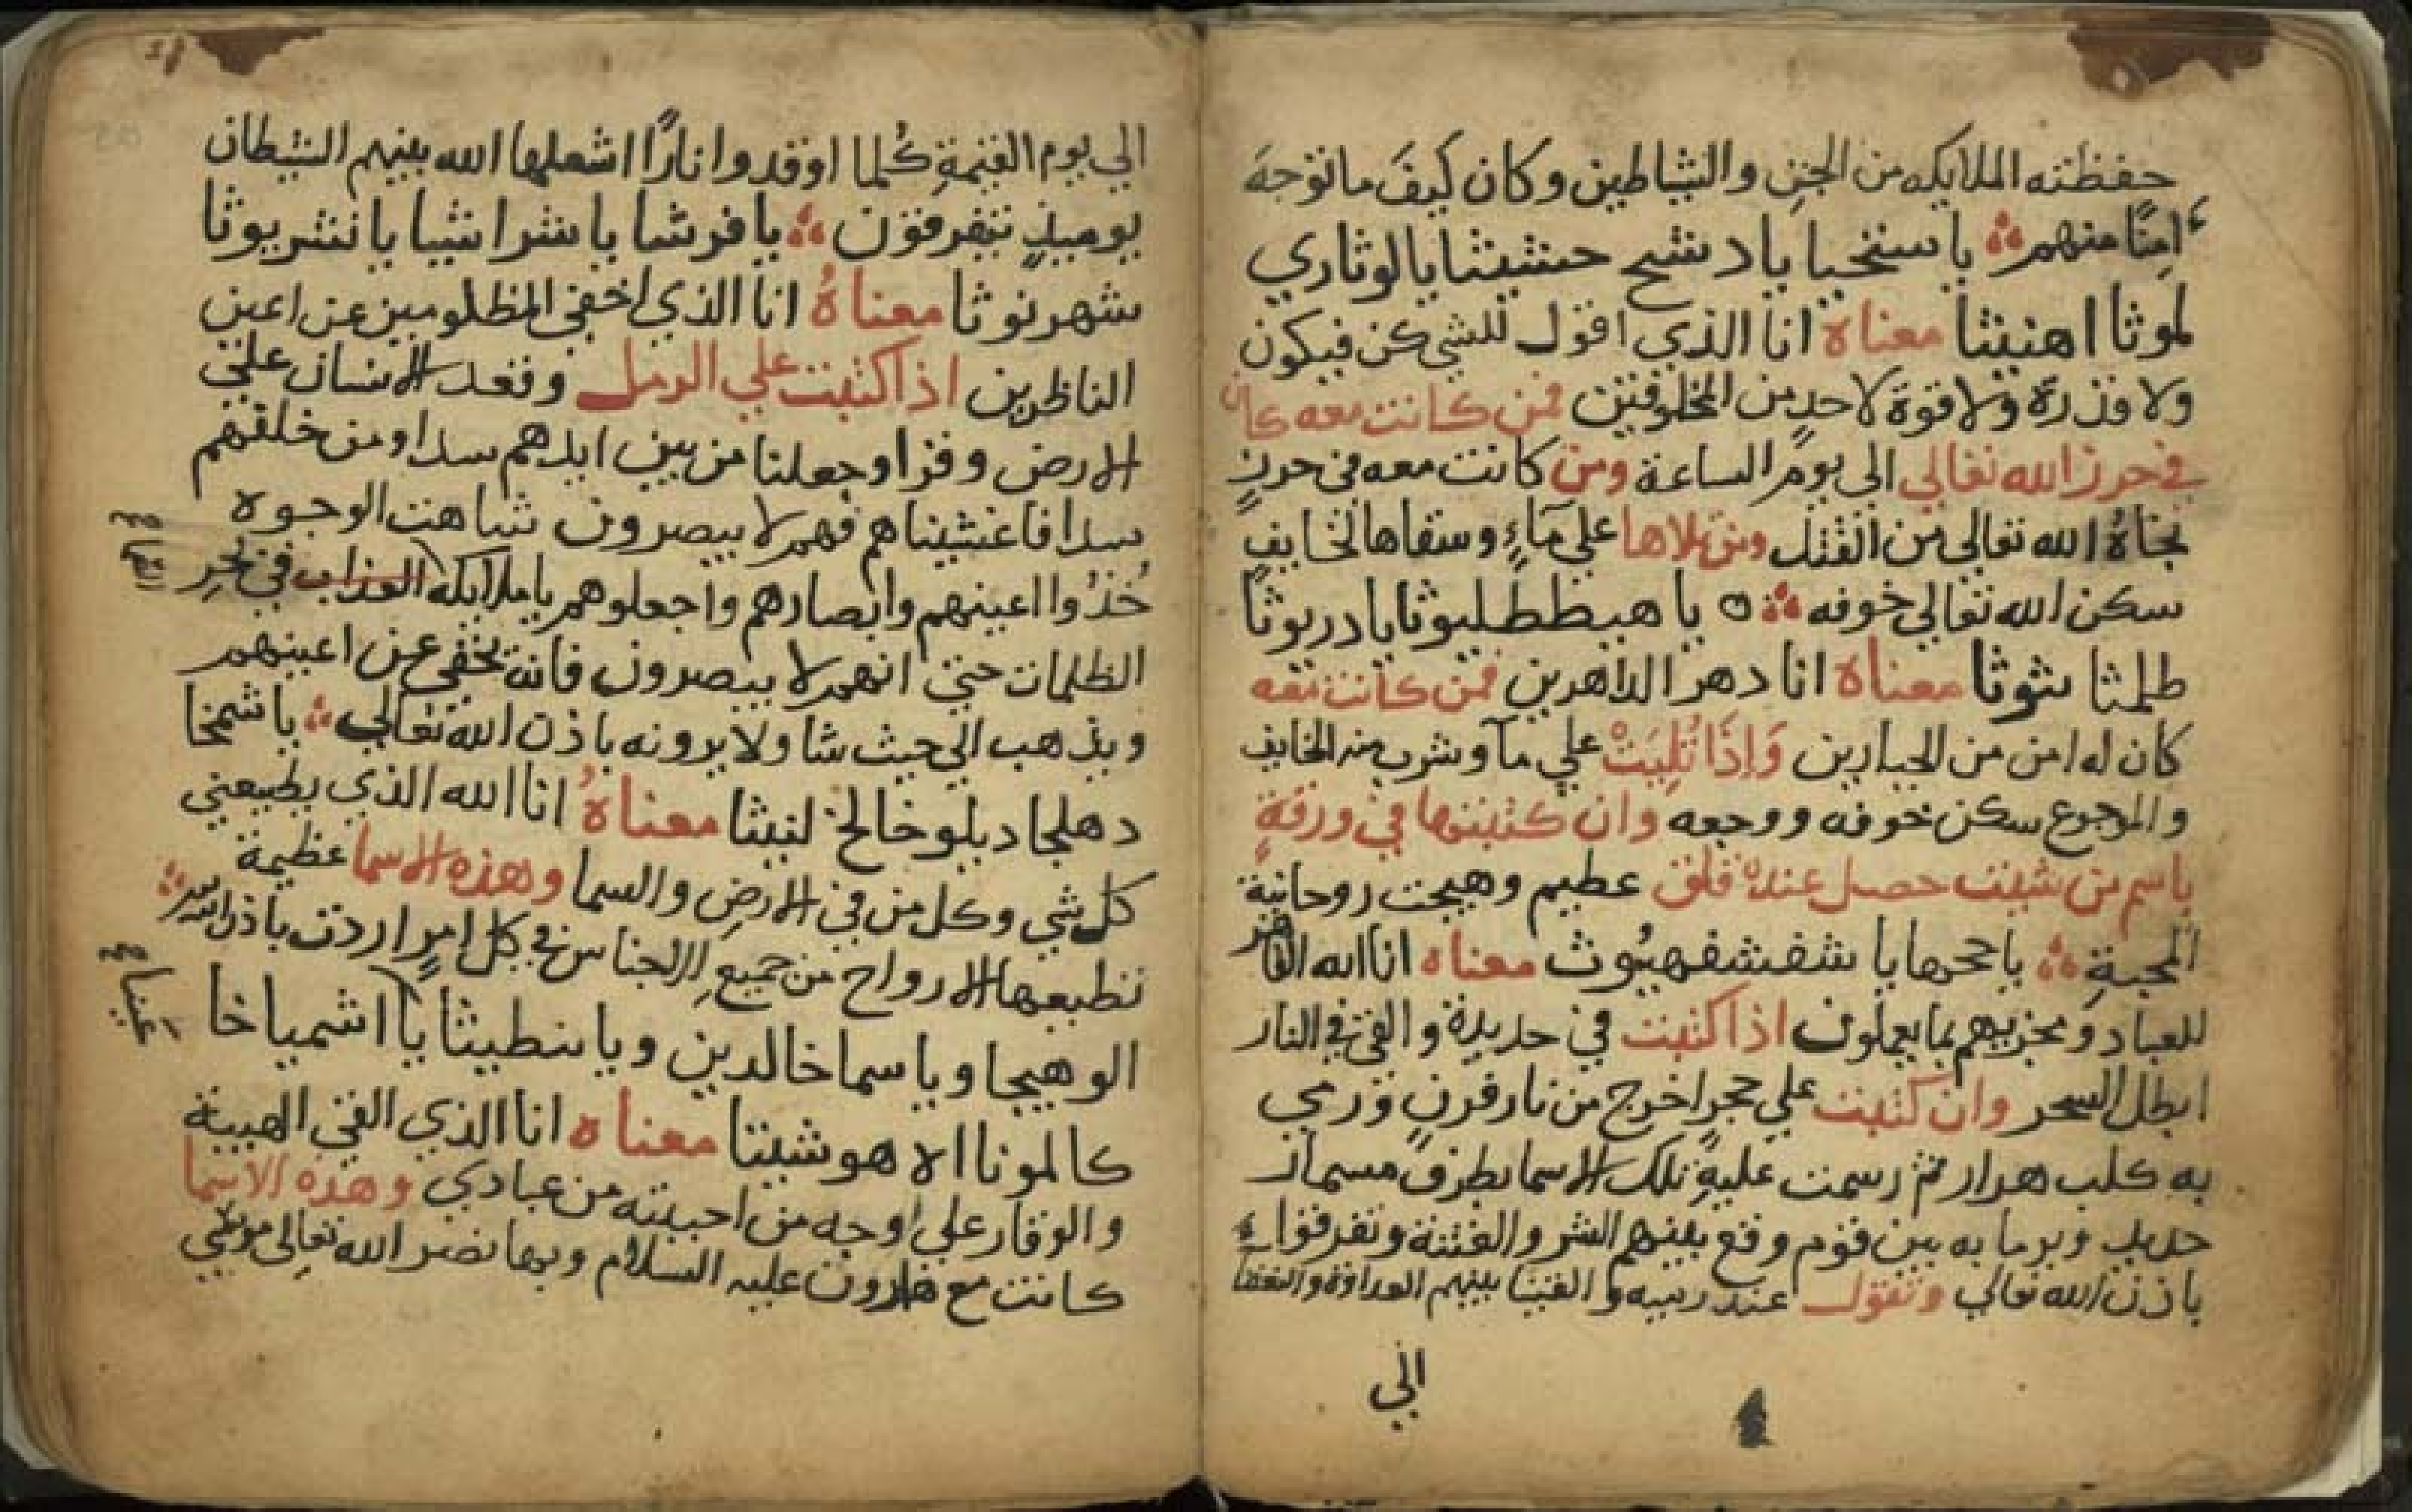 حفظته الملايكه من الجن والشياطين وكان كيفَ ما توجهَ
امِنًا منهم يا سنخيا يا دشح حشيثا يا لوثاري
لموثا اهنيثا معناه انا الذي اقول للشي كن فيكون
ولا قذرة ولا قوة لاحدٍ من المخلوقين فمن كانت معه كان
في حرز الله تعالي الي يوم الساعة ومن كانت معه في حرزٍ
نجاهُ الله تعالي من القتل ومن تلاها علي مآءٍ وسقاها لخايفٍ
سكن الله تعالي خوفه يا هبططليوثا يا دريوثا
طلمثا شوثا معناه انا دهر الداهرين فمن كانت معه
كان له امن من الجبارين وَاِذَا تُلِيَتْ علي مآ وشرب منه الخايف
والموجوع سكن خوفه ووجعه وان كتبتها في ورقةٍ
باسم من شيت حصل عنده قلق عظيم وهيجت روحانية
المحبةِ يا ححها يا شفشفهيوث معناه انا الله القاهر
للعباد ومخزيهم بما يعملون اذا كتبت في حديدة والقي في النار
ابطل السحر وان كتبت علي حجرٍ اخرج من نار فرنٍ ورمي
به كلب هرار ثم رسمت عليهِ تلك الاسما بطرف مسمار
حديد ويرما به بين قوم وقع بينهم الشر والفتنة وتفرقوا
باذن الله تعالي وتقول عند رميه والقينا بينهم العداوة والبغضا
الي
الي يوم القيمةِ كُلما اوقدوا نارًا اشعلها الله بينهم الشيطان
يوميذٍ يتفرقون يا فرشا يا شراشيا يا نشريوثا
شهرنوثا معناهُ انا الذي اخفي المظلومين عن اعين
الناظرين اذا كتبت علي الرمل وقعد الانسان علي
الارض وقرا وجعلنا من بين ايدهم سدا ومن خلفهم
سدا فاغشيناهم فهم لا يبصرون شاهت الوجوه
خُذُوا اعينهم وابصارهم واجعلوهم يا ملايكه العذاب في بحرِ
الظلمات حتي انهم لا يبصرون فانه يخفي عن اعينهم
ويذهب الي حيث شا ولا يرونه باذن الله تعالي يا شمخا
دهلجا ديلوخا لخ لنيثا معناهُ انا الله الذي يطيعني
كل شي وكل من في الارضِ والسما وهذه الاسما عظيمة
تطيعها الارواح من جميعِ الاجناس في كل امرٍ اردت باذن الله
الوهيجا ويا سما خالدين ويا ينطيثا يا اشمياخا
كالمونا الا هوشيثا معناه انا الذي القي الهيبة
والوقار علي اوجه من احببته من عبادي وهذه الاسما
كانت مع هارون عليه السلام وبها نصر الله تعالى موسي